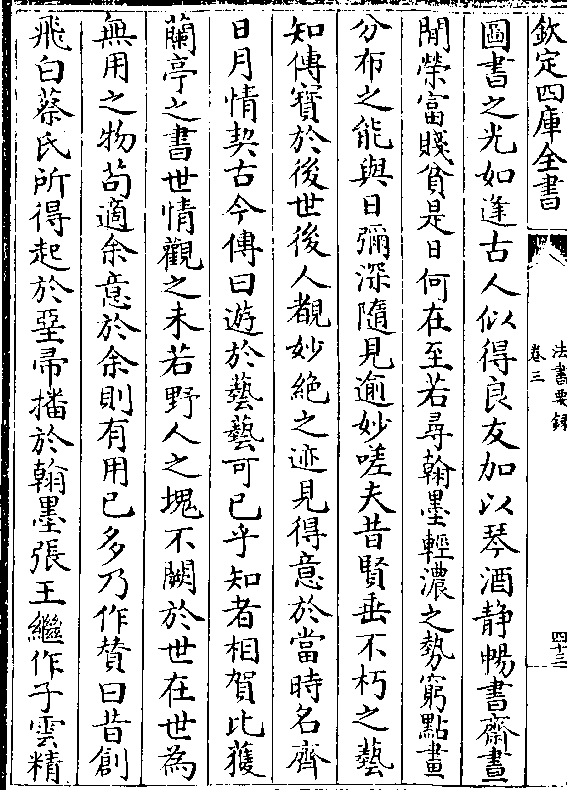 欽定四庫全書
法書要錄
卷三
四十三
圖書之光如逢古人似得良友加以琴酒静暢書齋晝
閒榮富賤貧是日何在至若尋翰墨輕濃之勢窮點畫
分布之能與日彌深隨見逾妙嗟夫昔賢垂不朽之藝
知傳寳於後世後人覩妙絶之迹見得意於當時名齊
日月情契古今傳曰遊於藝藝可已乎知者相賀比獲
蘭亭之書世情觀之未若野人之塊不闕於世在世為
無用之物苟適余意於余則有用已多乃作賛曰昔創
飛白蔡氏所得起於堊帚播於翰墨張王繼作子雲精